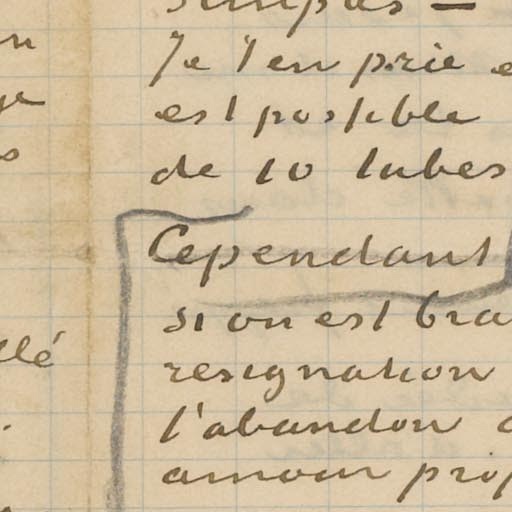 Je t'en prie
est possible
de 10 tubes
Cependant
si on est bra
resignation
l'abandon
amour prop
llé